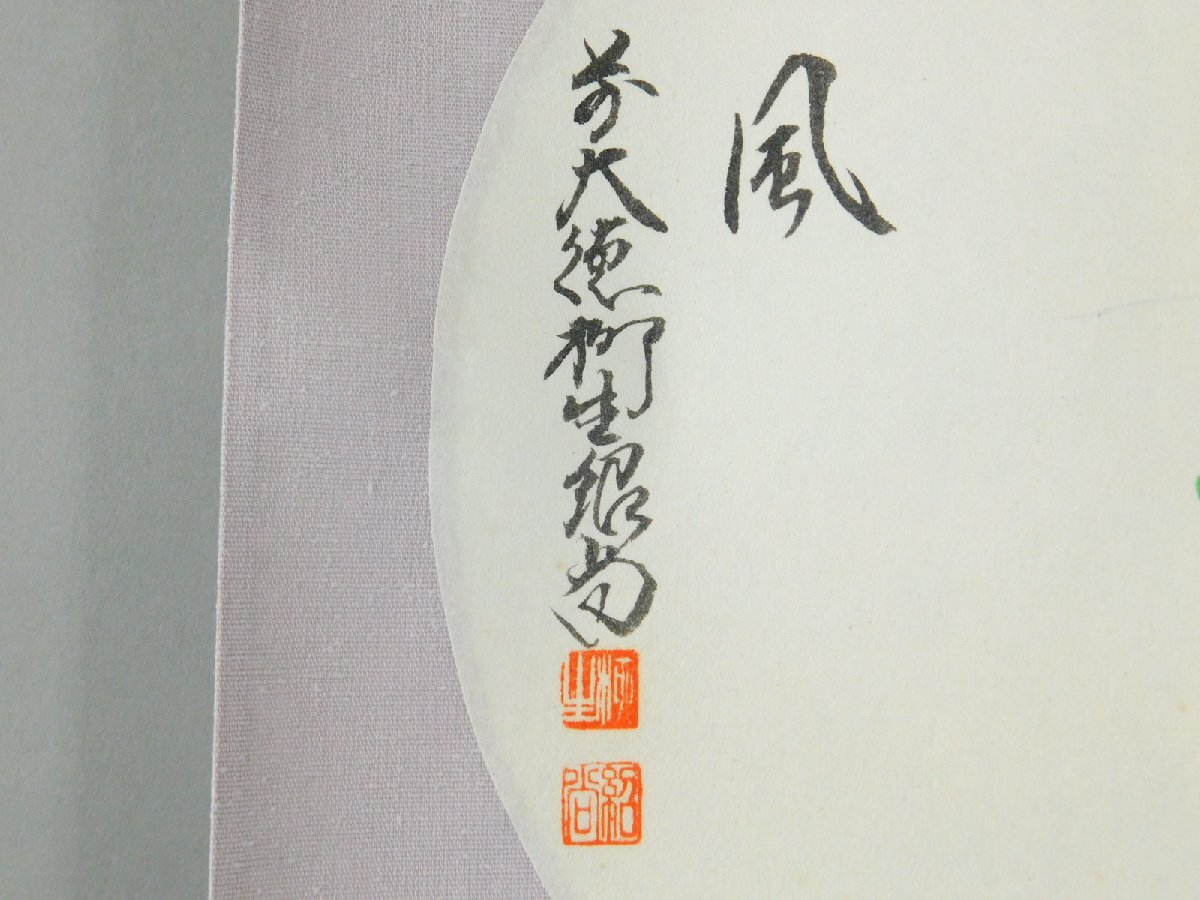 風
前大徳柳生紹尚
柳生
紹尚